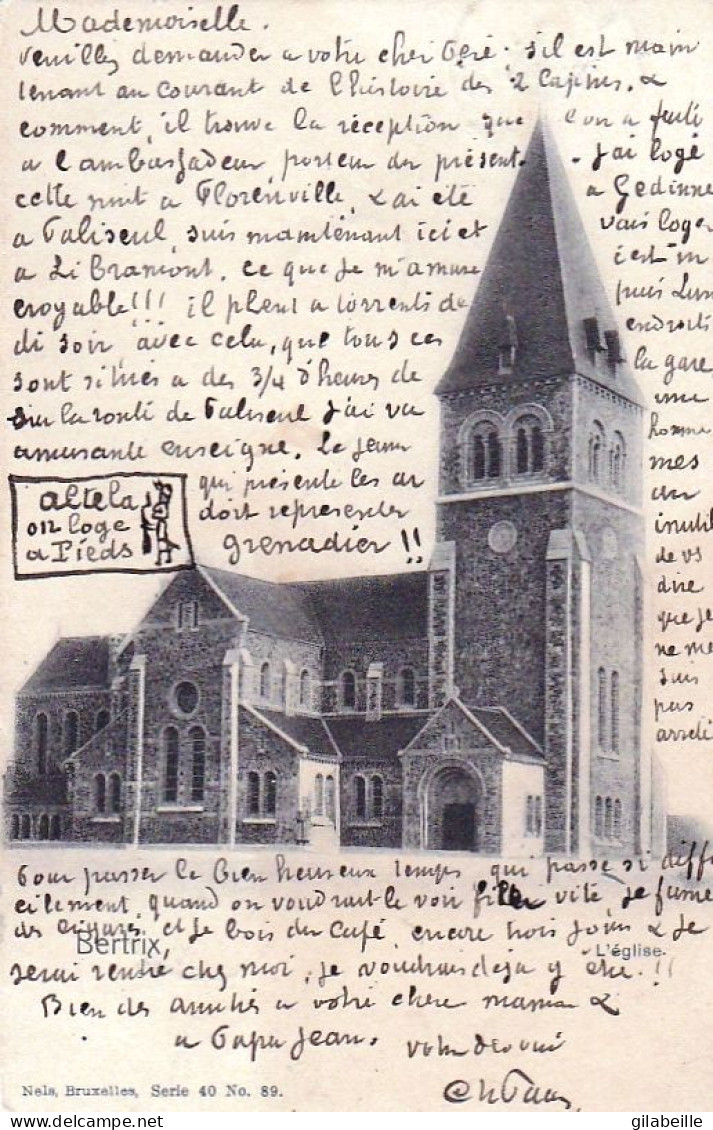 Mademoiselle.
veuillez demander a votre cher Père, s'il est main
tenant au courant de l'histoire des 2 Lapins. &
comment, il trouve la réception que l'on a fait
a l'ambassadeur, porteur du présent. J'ai logé
cette nuit a Florenville, & ai été a Gedinne
a Paliseul, suis maintenant ici et vais loger
a Libramont. ce que je m'amuse c'est in
croyable!!! il pleut a torrents de puis
di soir, avec cela, que tous ces endroits
sont situés a des 3/4 d'heures de la gare,
sur la route de Paliseul j'ai vu une
amusante enseigne. Le
qui présente les
doit représenter
grenadier!!
homme
mes
un
inutil
de vs
dire
que je
ne me
suis
pas
arrêté
altela
on loge
a Pieds
Pour passer le bien heureux temps qui passe si diffi
cilement, quand on voudrait le voir filer vite, je fume
des cigares et je bois du Café, encore trois jours & je
serai rentré chez moi, je voudrais deja y être.!!
Bien des amitiés a votre chere maman &
a Papa Jean. votre dévoué
Bertrix,
L'église.
Nels, Bruxelles, Serie 40 No. 89.
gilabeille